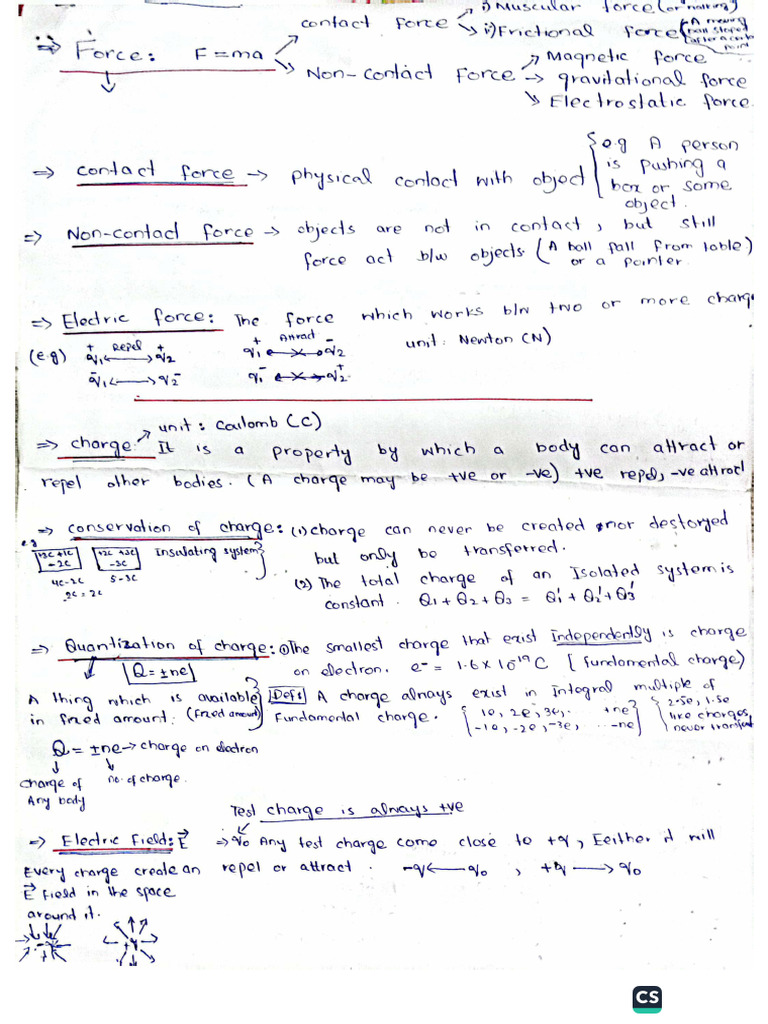 i) Muscular force (or
contact force ii) Frictional force (A moving
ball stopped
after a certain
point
⇒ Force: F = ma
Non-Contact Force → Magnetic force
→ gravitational force
→ Electrostatic force.
⇒ contact force → physical contact with object { e.g A person
is pushing a
box or some
object.
⇒ Non-contact force → objects are not in contact, but still
force act b/w objects (A ball fall from table)
or a pointer.
⇒ Electric force: The force which works b/w two or more charge
(e.g) + Repel + + Attract - unit: Newton (N)
q1 ↔ q2 q1 ↔ q2
q1- ↔ q2- q1- ↔ q2+
unit: Coulomb (C)
⇒ charge: It is a property by which a body can attract or
repel other bodies. (A charge may be +ve or -ve) +ve repel, -ve attract
⇒ conservation of charge: (1) charge can never be created nor destoryed
but only be transferred.
e.g +3C +1C -2C +2C +3C -3C Insulating system}
4C-2C 5-3C
2C = 2C
(2) The total charge of an Isolated system is
constant. Q1 + Q2 + Q3 = Q1' + Q2' + Q3'
⇒ Quantization of charge: ① The smallest charge that exist Independently is charge
Q = ±ne on electron. e- = 1.6 × 10^-19 C [fundamental charge)
A thing which is available} Def: A charge always exist in Integral multiple of
in fixed amount. (Fixed amount) Fundamental charge. {1e, 2e, 3e, .. +ne} {2.5e, 1.5e
-1e, -2e, -3e, .. -ne like charges,
never transfer
Q = ±ne → charge on electron
charge of no. of charge.
Any body
Test charge is always +ve
⇒ Electric Field: E ⇒ q0 Any test charge come close to +q, Eeither it will
Every charge create an repel or attract. -q ← q0 , +q → q0
E field in the space
around it.
- +
CS